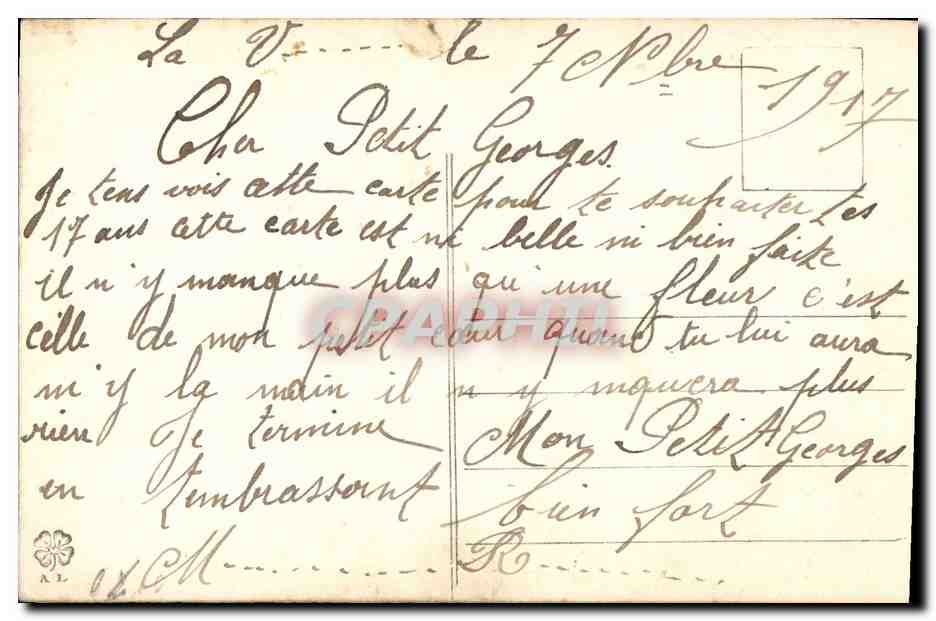 La V....... le 7 Nbre 1917
Cher Petit Georges.
Je tens vois cette carte pour te souhaiter tes
17 ans cette carte est ni belle ni bien faite
il n'y manque plus qu'une fleur c'est
celle de mon petit cœur quand tu lui aura
mi y la main il n y mquera plus
rien Je termine
en tembrassant
Mon Petit Georges
bien fort
M.......... R..........
A. L.
CPAPHIL